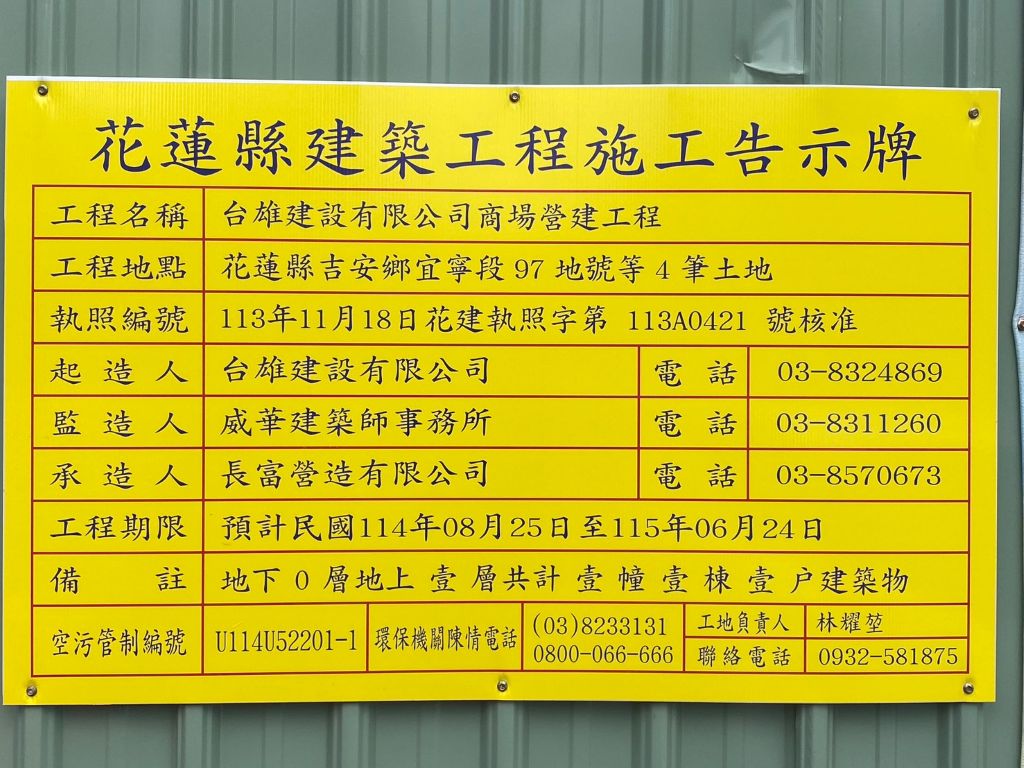 花蓮縣建築工程施工告示牌
工程名稱 台雄建設有限公司商場營建工程
工程地點 花蓮縣吉安鄉宜寧段 97 地號等 4 筆土地
執照編號 113年11月18日花建執照字第 113A0421 號核准
起造人 台雄建設有限公司 電話 03-8324869
監造人 威華建築師事務所 電話 03-8311260
承造人 長富營造有限公司 電話 03-8570673
工程期限 預計民國114年08月25日至115年06月24日
備註 地下 0 層地上 壹 層共計 壹 幢 壹 棟 壹 戶建築物
空污管制編號 U114U52201-1 環保機關陳情電話 (03)8233131
0800-066-666
工地負責人 林耀堃
聯絡電話 0932-581875